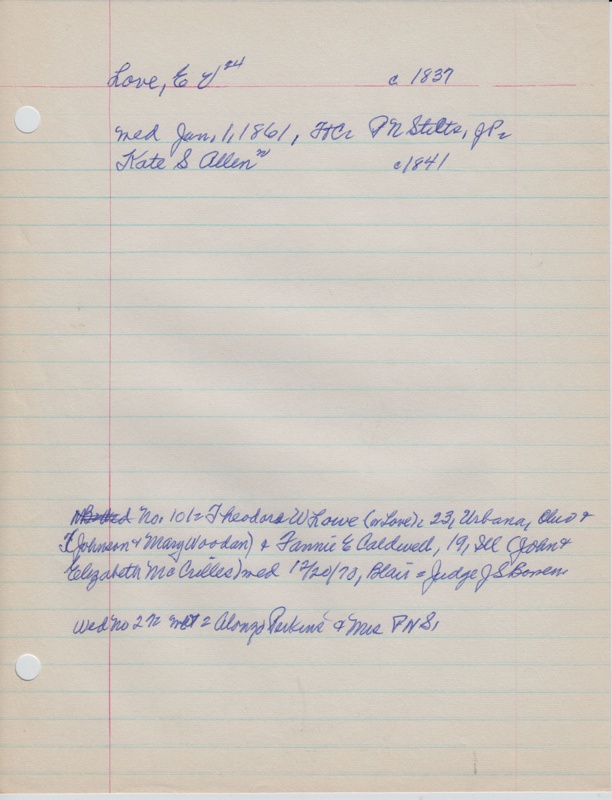 Love, E V 24 c 1837
med Jan, 1, 1861, Ft C, P N Stilts, JP,
Kate S Allen 20 c 1841
No. 101 = Theodore W Lowe (or Love), 23, Urbana, Ohio +
(Johnson + Mary Woodan) + Fannie E Caldwell, 19, Ill (John +
Elizabeth McCrilles) med 12/20/73, Blair = Judge J S Bowen
Wed No 272 = Alonzo Perkins + Mrs P N S,